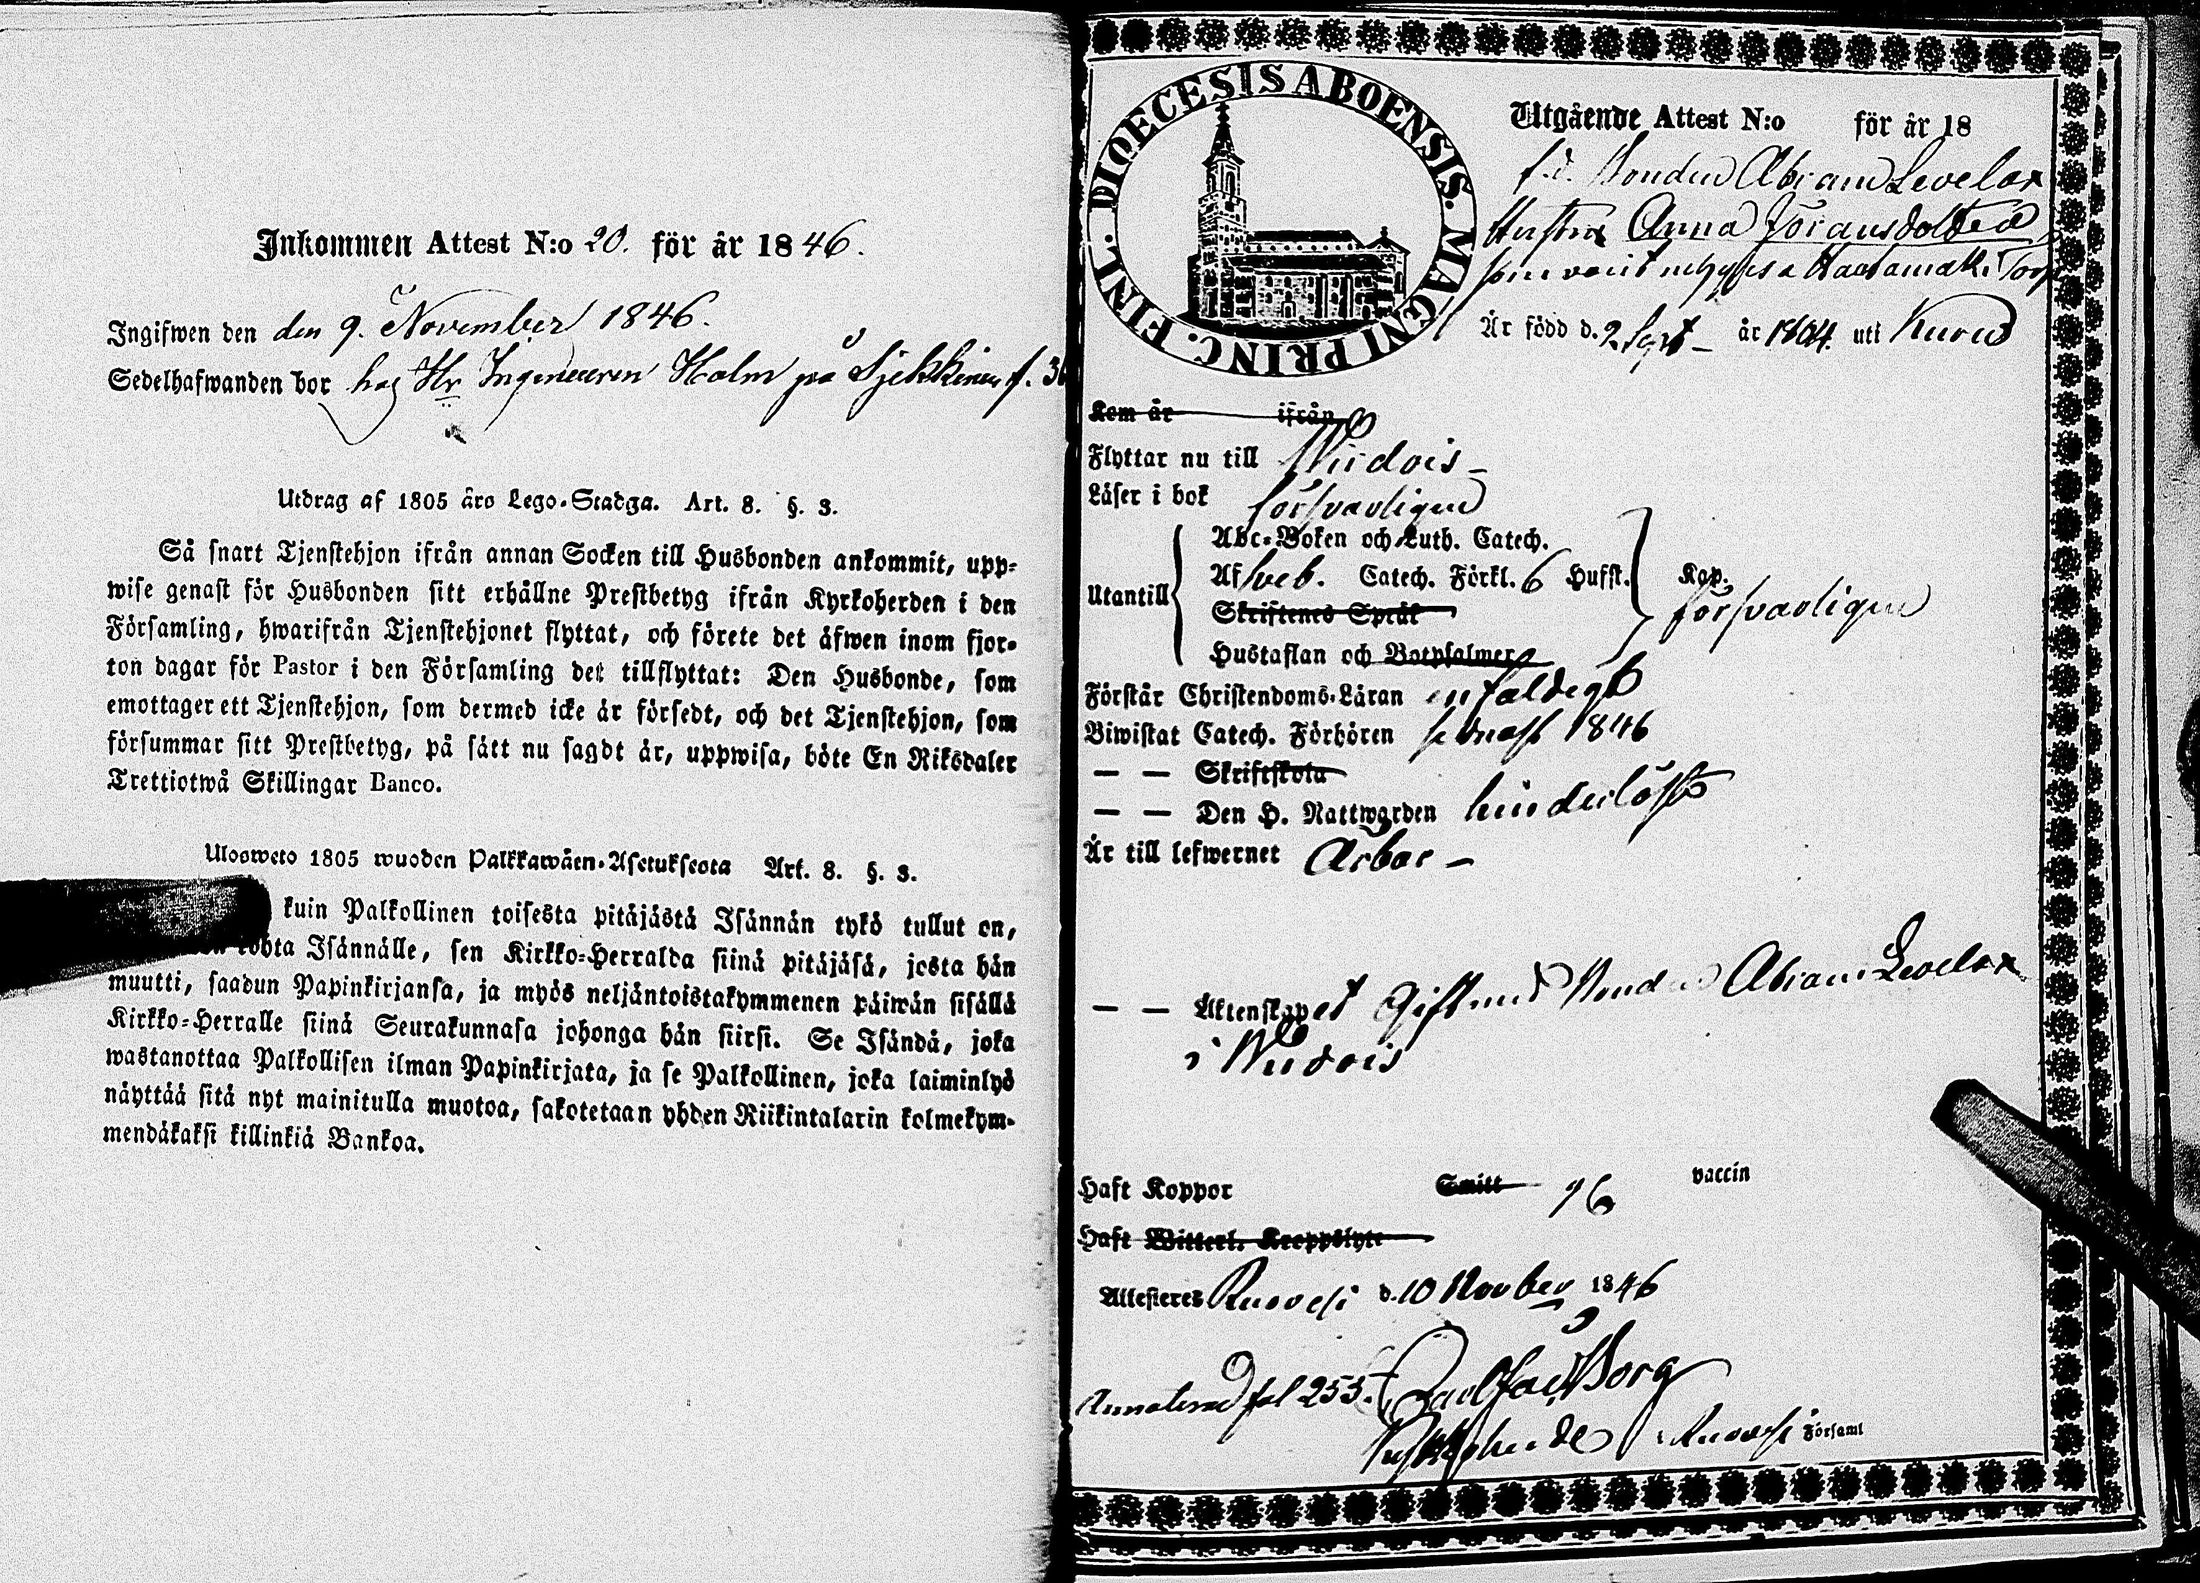 Inkommen Attest N:o 20. för år 1846.
Ingifwen den den 9. November 1846.
Sedelhafwanden bor hos Hr Ingenieuren Holm på Sjekkinen f. 36
Utdrag af 1805 års Lego-Stadga. Art. 8. §. 3.
Så snart Tjenstehjon ifrån annan Socken till Husbonden ankommit, upp-
wise genast för Husbonden sitt erhållne Prestbetyg ifrån Kyrkoherden i den
Församling, hwarifrån Tjenstehjonet flyttat, och förete det äfwen inom fjor-
ton dagar för Pastor i den Församling det tillflyttat: Den Husbonde, som
emottager ett Tjenstehjon, som dermed icke är försedt, och det Tjenstehjon, som
försummar sitt Prestbetyg, på sätt nu sagdt är, uppwisa, böte En Riksdaler
Trettiotwå Skillingar Banco.
Ulosweto 1805 wuoden Palkkawäen-Asetuksesta Art. 8. §. 3.
kuin Palkollinen toisesta pitäjästä Isännän tykö tullut on,
kohta Isännälle, sen Kirkko-Herralda siinä pitäjäsä, josta hän
muutti, saadun Papinkirjansa, ja myös neljäntoistakymmenen päiwän sisällä
Kirkko-Herralle siinä Seurakunnasa johonga hän siirsi. Se Isändä, joka
wastanottaa Palkollisen ilman Papinkirjata, ja se Palkollinen, joka laiminlyö
näyttää sitä nyt mainitulla muotoa, sakotetaan yhden Riikintalarin kolmekym-
mendäkaksi killinkiä Bankoa.
DIOECESIS ABOENSIS. MAGNI PRINC. FINL.
Utgående Attest N:o för år 18
f.d. Bonden Abram Levelax
Hustru Anna Jöransdotter
som varit Torp
Är född d. 2 Sept år 1804. uti Kuru
Kom år ifrån
Flyttar nu till Wirdois
Läser i bok försvarligen
Abc-Boken och Luth. Catech.
Utantill Af Sveb. Catech. Förkl. 6 Hufst. Kap. försvarligen
Skriftenes Språk
Hustaflan och Botpsalmer
Förstår Christendoms-Läran enfaldigt
Biwistat Catech. Förhören sednast 1846
— — Skriftskola
— — Den H. Nattwarden hinderlöst
Är till lefwernet Ärbar —
— — Äktenskapet Gift med Bonden Abram Levelax
i Wirdois
Haft Koppor Smitt vaccin
Haft Witterl. Kroppslyte
Attesteres Ruovesi d. 10 November 1846
Annoterad fol 255. Carl Borg
Kyrkoherde i Ruovesi Församl